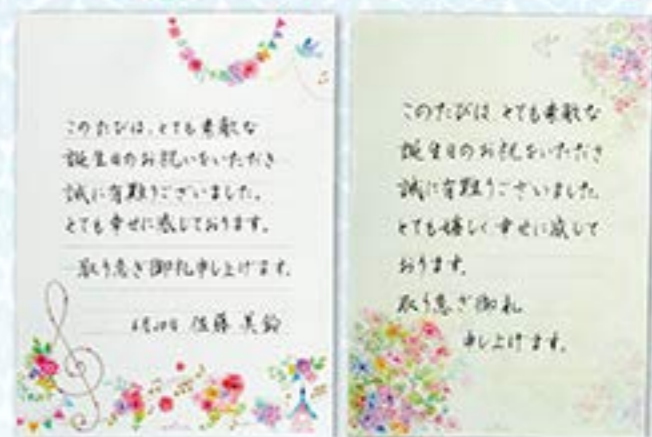 このたびは、とても素敵な
誕生日のお祝いをいただき
誠に有難うございました。
とても幸せに感じております。
取り急ぎ御礼申し上げます。
佐藤 美鈴
このたびは とても素敵な
誕生日のお祝いをいただき
誠に有難うございました。
とても嬉しく幸せに感じて
おります。
取り急ぎ御礼
申し上げます。